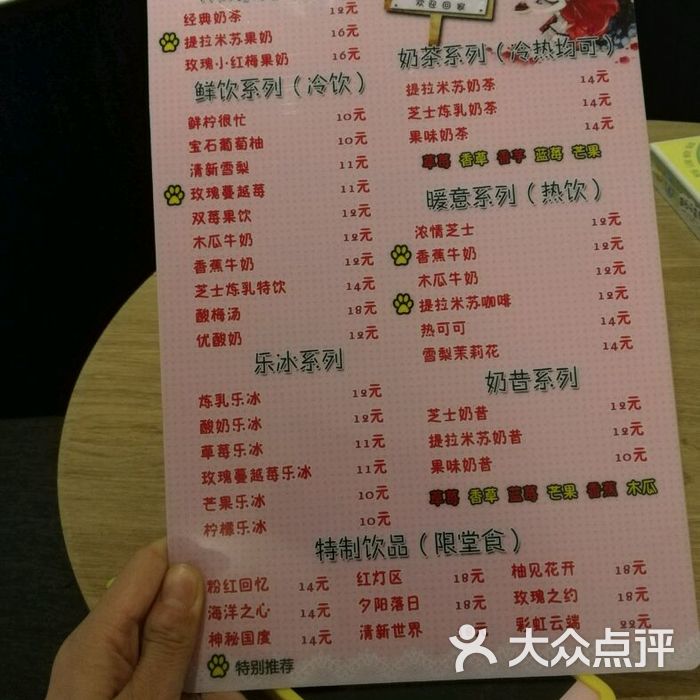 经典奶茶 12元
提拉米苏果奶 16元
玫瑰小红梅果奶 16元
鲜饮系列（冷饮）
鲜柠很忙 10元
宝石葡萄柚 10元
清新雪梨 11元
玫瑰蔓越莓 11元
双莓果饮 12元
木瓜牛奶 12元
香蕉牛奶 12元
芝士炼乳特饮 14元
酸梅汤 18元
优酸奶 12元
乐冰系列
炼乳乐冰 12元
酸奶乐冰 12元
草莓乐冰 11元
玫瑰蔓越莓乐冰 11元
芒果乐冰 10元
柠檬乐冰 10元
欢迎回家
奶茶系列（冷热均可）
提拉米苏奶茶 14元
芝士炼乳奶茶 14元
果味奶茶 14元
草莓 香草 香芋 蓝莓 芒果
暖意系列（热饮）
浓情芝士 12元
香蕉牛奶 12元
木瓜牛奶 12元
提拉米苏咖啡 12元
热可可 14元
雪梨茉莉花 14元
奶昔系列
芝士奶昔 12元
提拉米苏奶昔 12元
果味奶昔 10元
草莓 香草 蓝莓 芒果 香蕉 木瓜
特制饮品（限堂食）
粉红回忆 14元 红灯区 18元 柚见花开 18元
海洋之心 14元 夕阳落日 18元 玫瑰之约 18元
神秘国度 14元 清新世界 彩虹云端 22元
特别推荐
大众点评